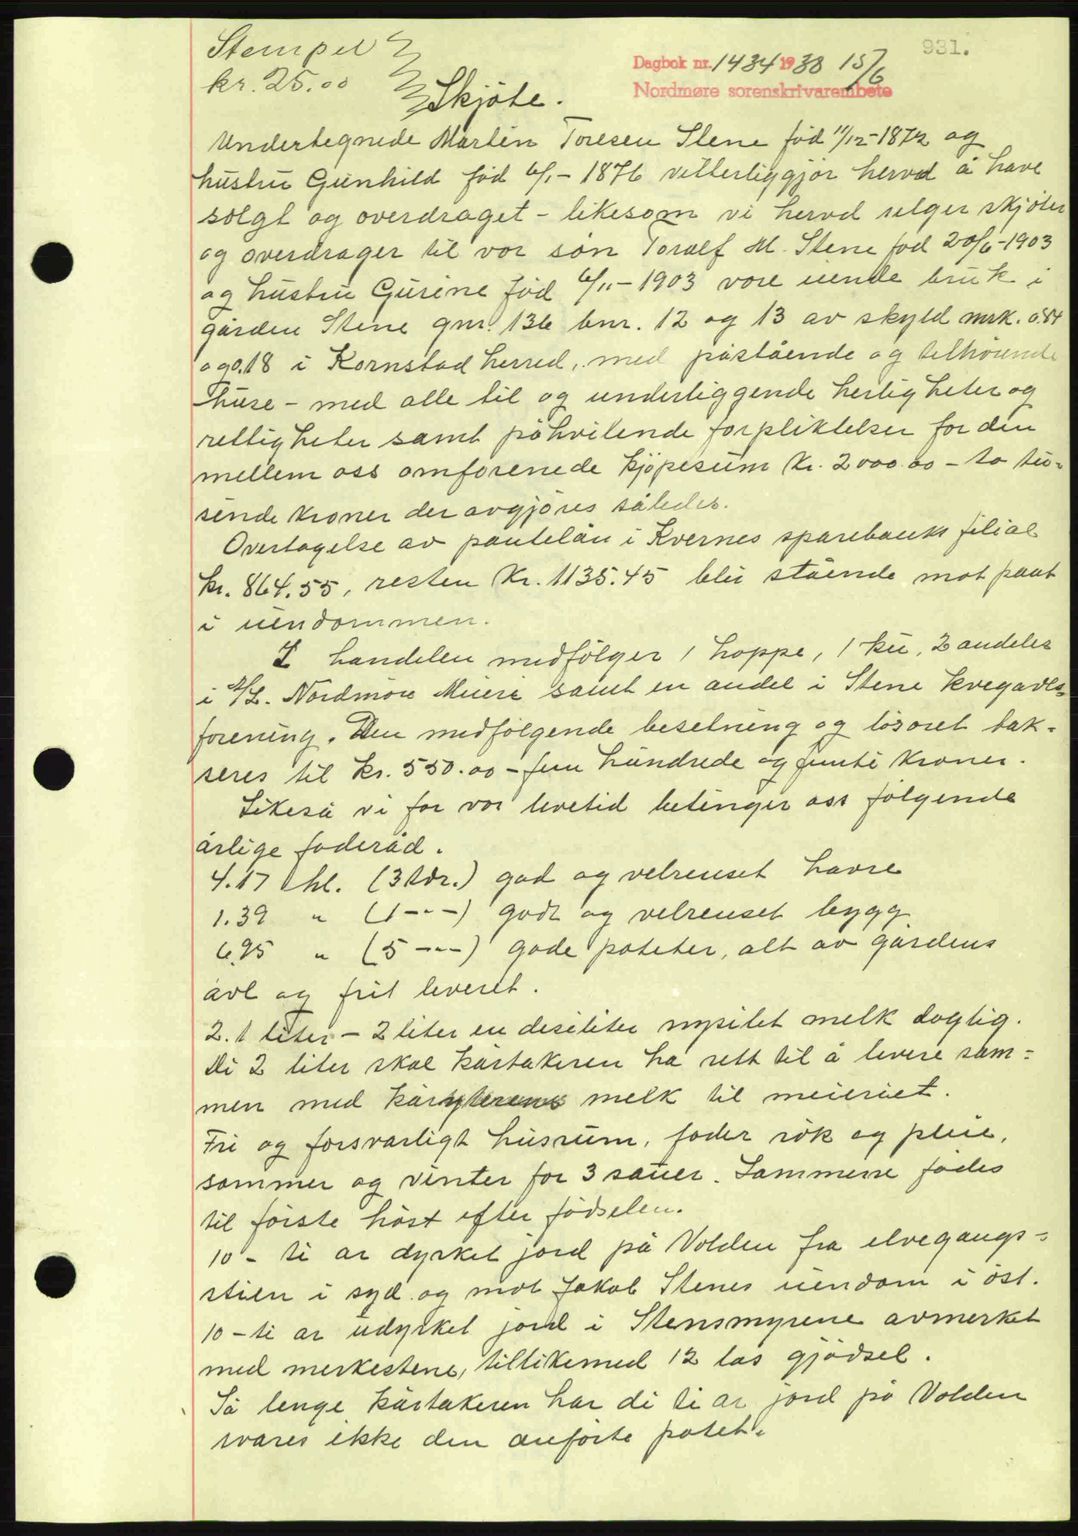 931.
Stempel
kr. 25.00
Dagbok nr. 1434 1938 15/6
Nordmøre sorenskrivarembete
Skjøte.
Undertegnede Martin Toresen Stene fød 11/12-1872 og
hustru Gunhild fød 6/1-1876 vitterliggjør herved å have
solgt og overdraget - likesom vi herved selger skjøter
og overdrager til vor søn Toralf M. Stene fød 20/6-1903
og hustru Gurine fød 6/11-1903 vore eiende bruk i
gården Stene gnr. 136 bnr. 12 og 13 av skyld mrk. 0.84
og 0.18 i Kornstad herred, med påstående og tilhørende
huse - med alle til og underliggende herligheter og
rettigheter samt påhvilende forpliktelser for den
mellem oss omforenede kjøpesum kr. 2000.00 - to tu-
sende kroner der avgjøres således.
Overtagelse av pantelån i Kvernes sparebank filial
kr. 864.55, resten kr. 1135.45 blir stående mot pant
i eiendommen.
I handelen medfølger 1 hoppe, 1 ku, 2 andeler
i A/L. Nordmøre Meieri samt en andel i Stene kvegavls-
forening. Den medfølgende besetning og løsøret tak-
seres til kr. 550.00 - fem hundrede og femti kroner.
Likeså vi for vor levetid betinger oss følgende
årlige foderåd.
4.17 hl. (3 tdr.) god og velrenset havre
1.39 " (1 -"-) godt og velrenset bygg
6.95 " (5 -"-) gode poteter, alt av gårdens
avl og frit leveret.
2.1 liter - 2 liter en desiliter nysilet melk daglig.
Di 2 liter skal kårtakeren ha rett til å levere sam-
men med kåryterens melk til meieriet.
Fri og forsvarligt husrum, foder røk og pleie,
sommer og vinter for 3 sauer. Lammene fødes
til første høst efter fødselen.
10 - ti ar dyrket jord på Volden fra elvegangs-
stien i syd og mot Jakob Stenes eiendom i øst.
10 - ti ar udyrket jord i Stensmyrene avmerket
med merkestene, tillikemed 12 las gjødsel.
Så lenge kårtakeren har di ti ar jord på Volden
svares ikke den anførte potet-